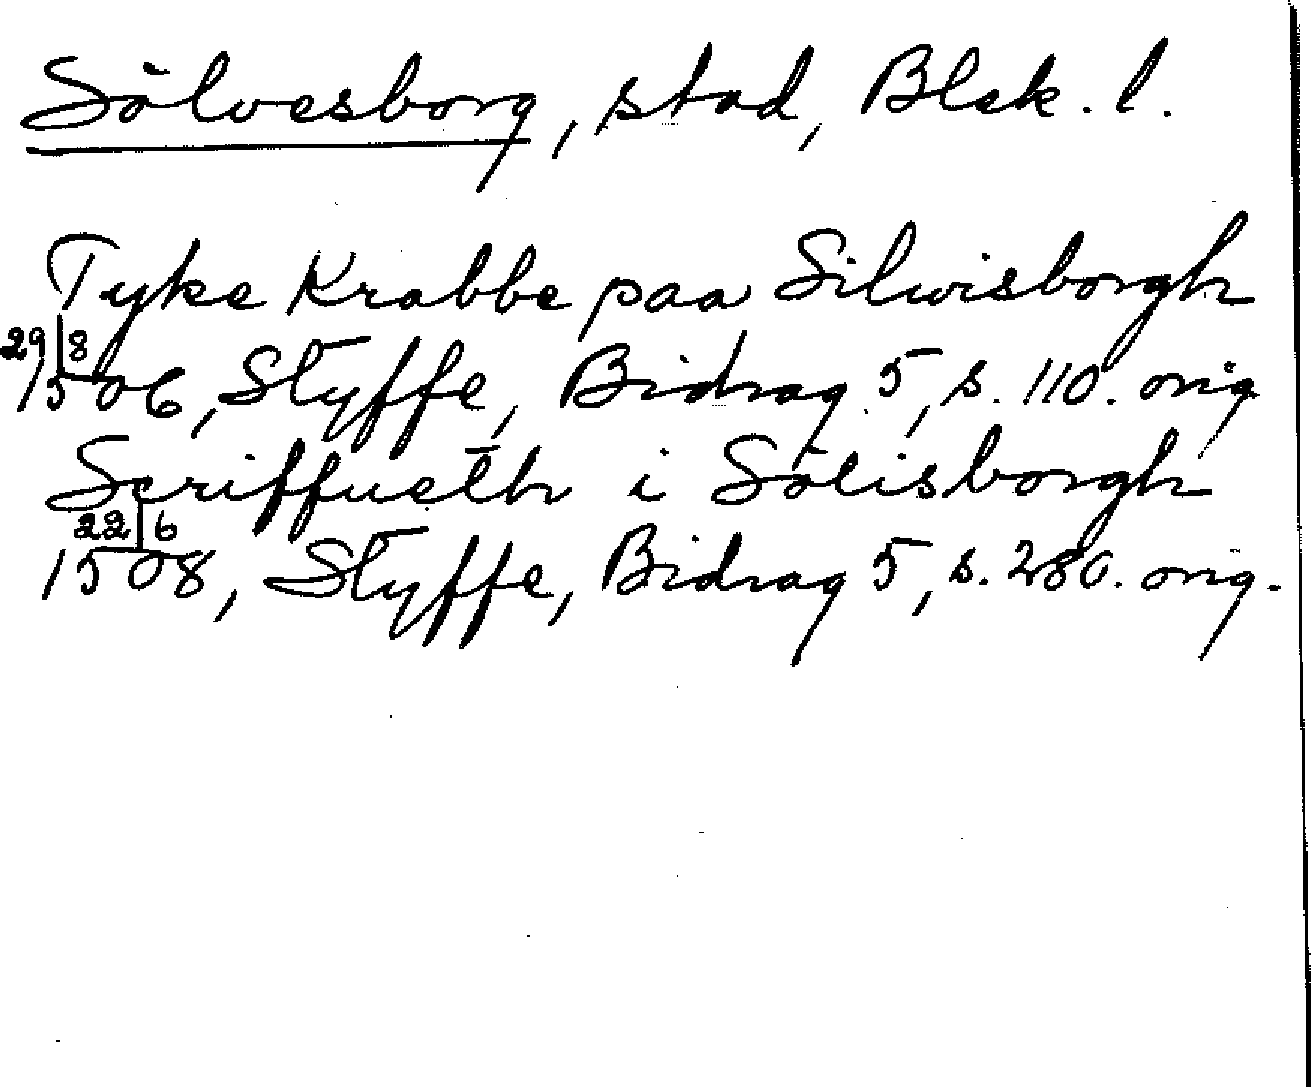 Sölvesborg, stad, Blek. l.
Tyke Krabbe paa Silwisborgh
29/8
1506, Styffe, Bidrag 5, s. 110. orig
Scriffueth i Sölisborgh
22/6
1508, Styffe, Bidrag 5, s. 280. orig.